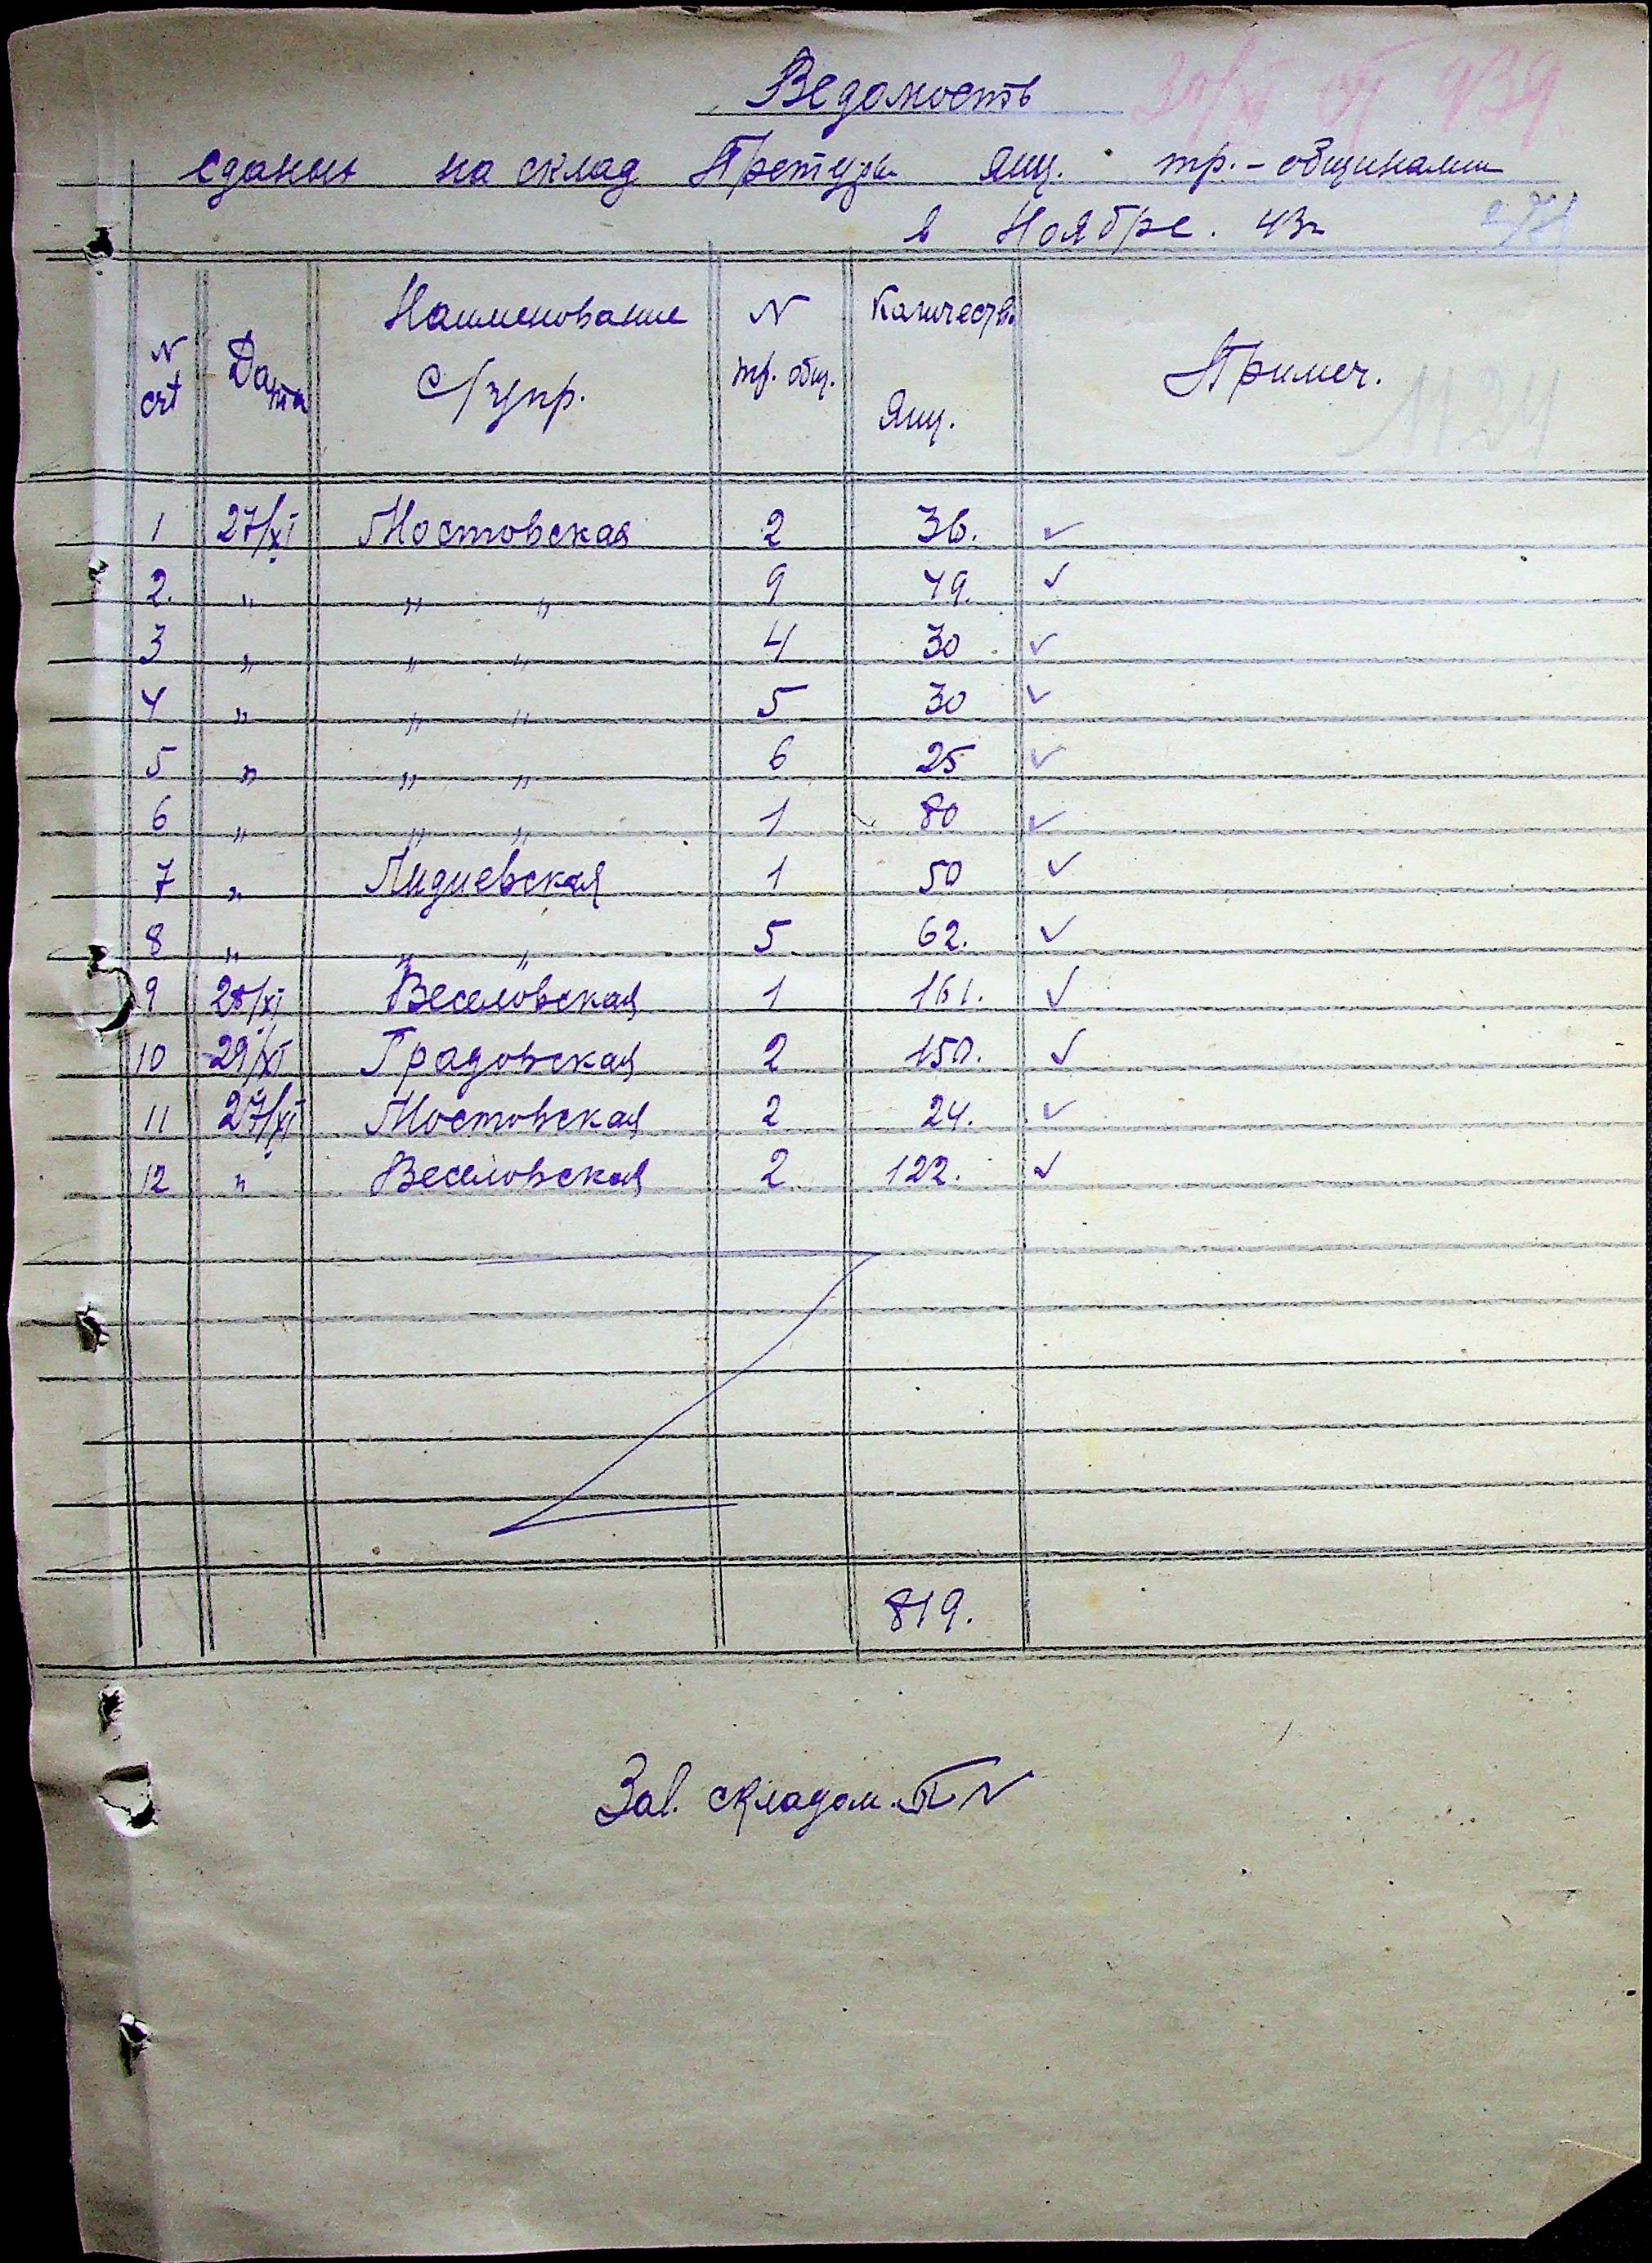 Ведомость
сданых на склад Претуры ящ. тр.-общинами
в Ноябре. 43г
N сч Дата Наименование с/упр. N тр. общ. Количеств. Ящ. Примеч.
1124
1 27/XI Мостовская 2 36. ✓
2. " " " 9 49. ✓
3 " " " 4 30 ✓
4 " " " 5 30 ✓
5 " " " 6 25 ✓
6 " " " 1 80 ✓
7 " Лидиевская 1 50 ✓
8 " " " 5 62. ✓
9 28/XI Веселовская 1 161. ✓
10 29/XI Градовская 2 150. ✓
11 27/XI Мостовская 2 24. ✓
12 " Веселовская 2 122. ✓
819.
Зав. складом.